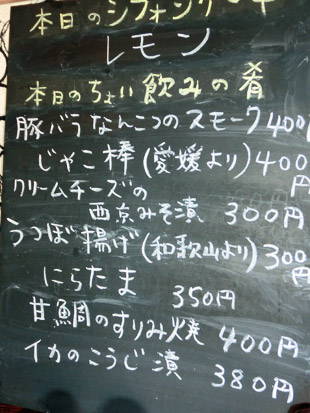 本日のシフォンケーキ
レモン
本日のちょい飲みの肴
豚バラなんこつのスモーク400円
じゃこ棒(愛媛より)400円
クリームチーズの
西京みそ漬 300円
うつぼ揚げ(和歌山より)300円
にらたま 350円
甘鯛のすりみ焼 400円
イカのこうじ漬 380円